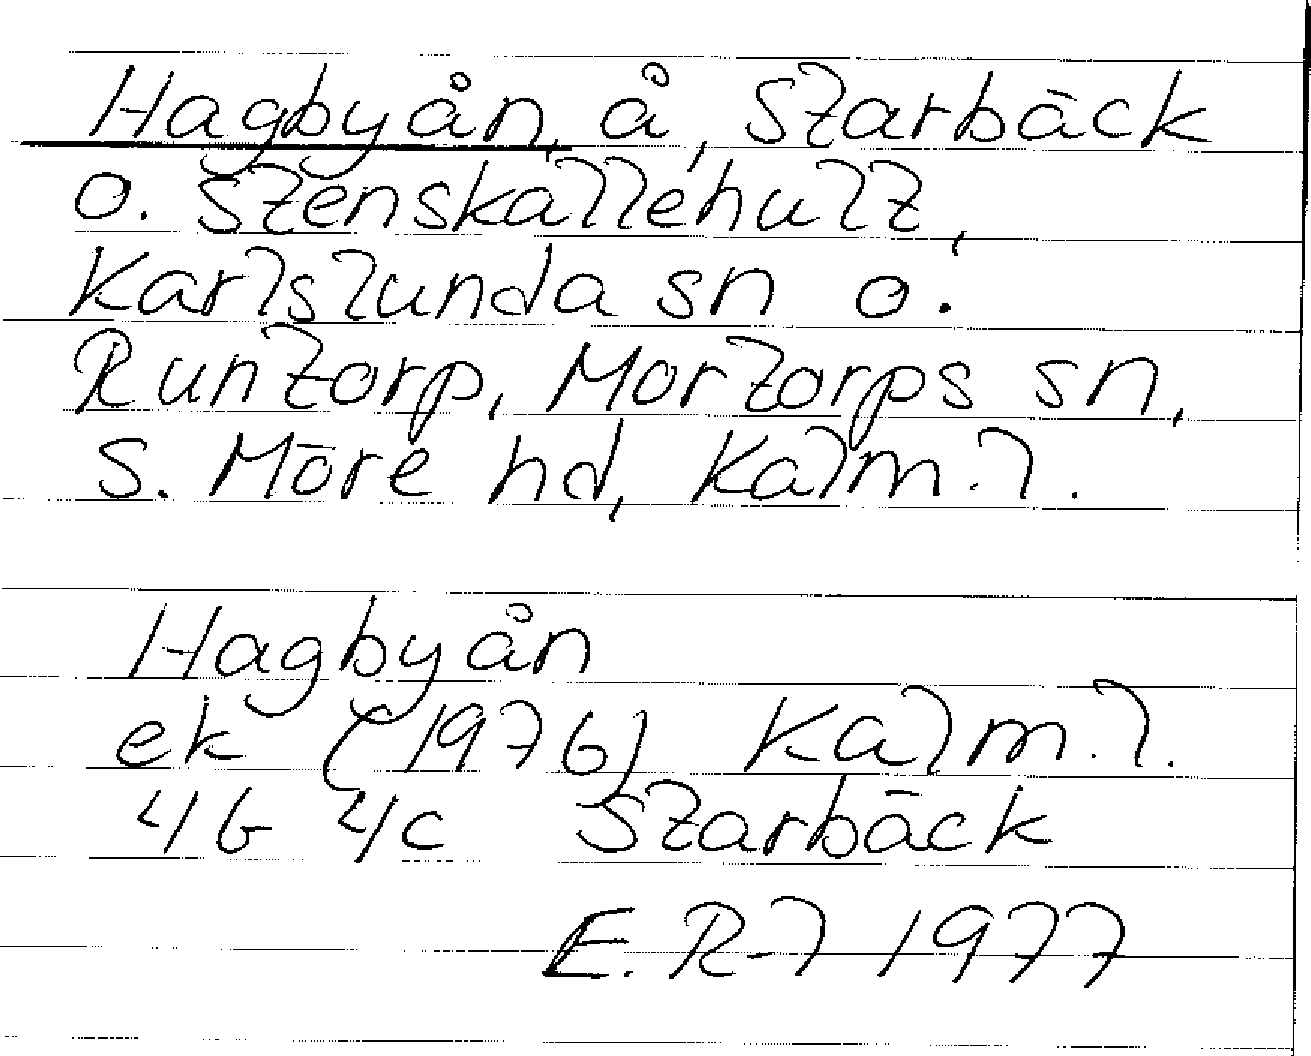 Hagbyån, å, Starbäck
o. Stenskallehult,
Karlslunda sn o.
Runtorp, Mortorps sn,
S. Möre hd, Kalm. l.
Hagbyån
ek (1976) Kalm. l.
4G 4c Starbäck
E. R-l 1977